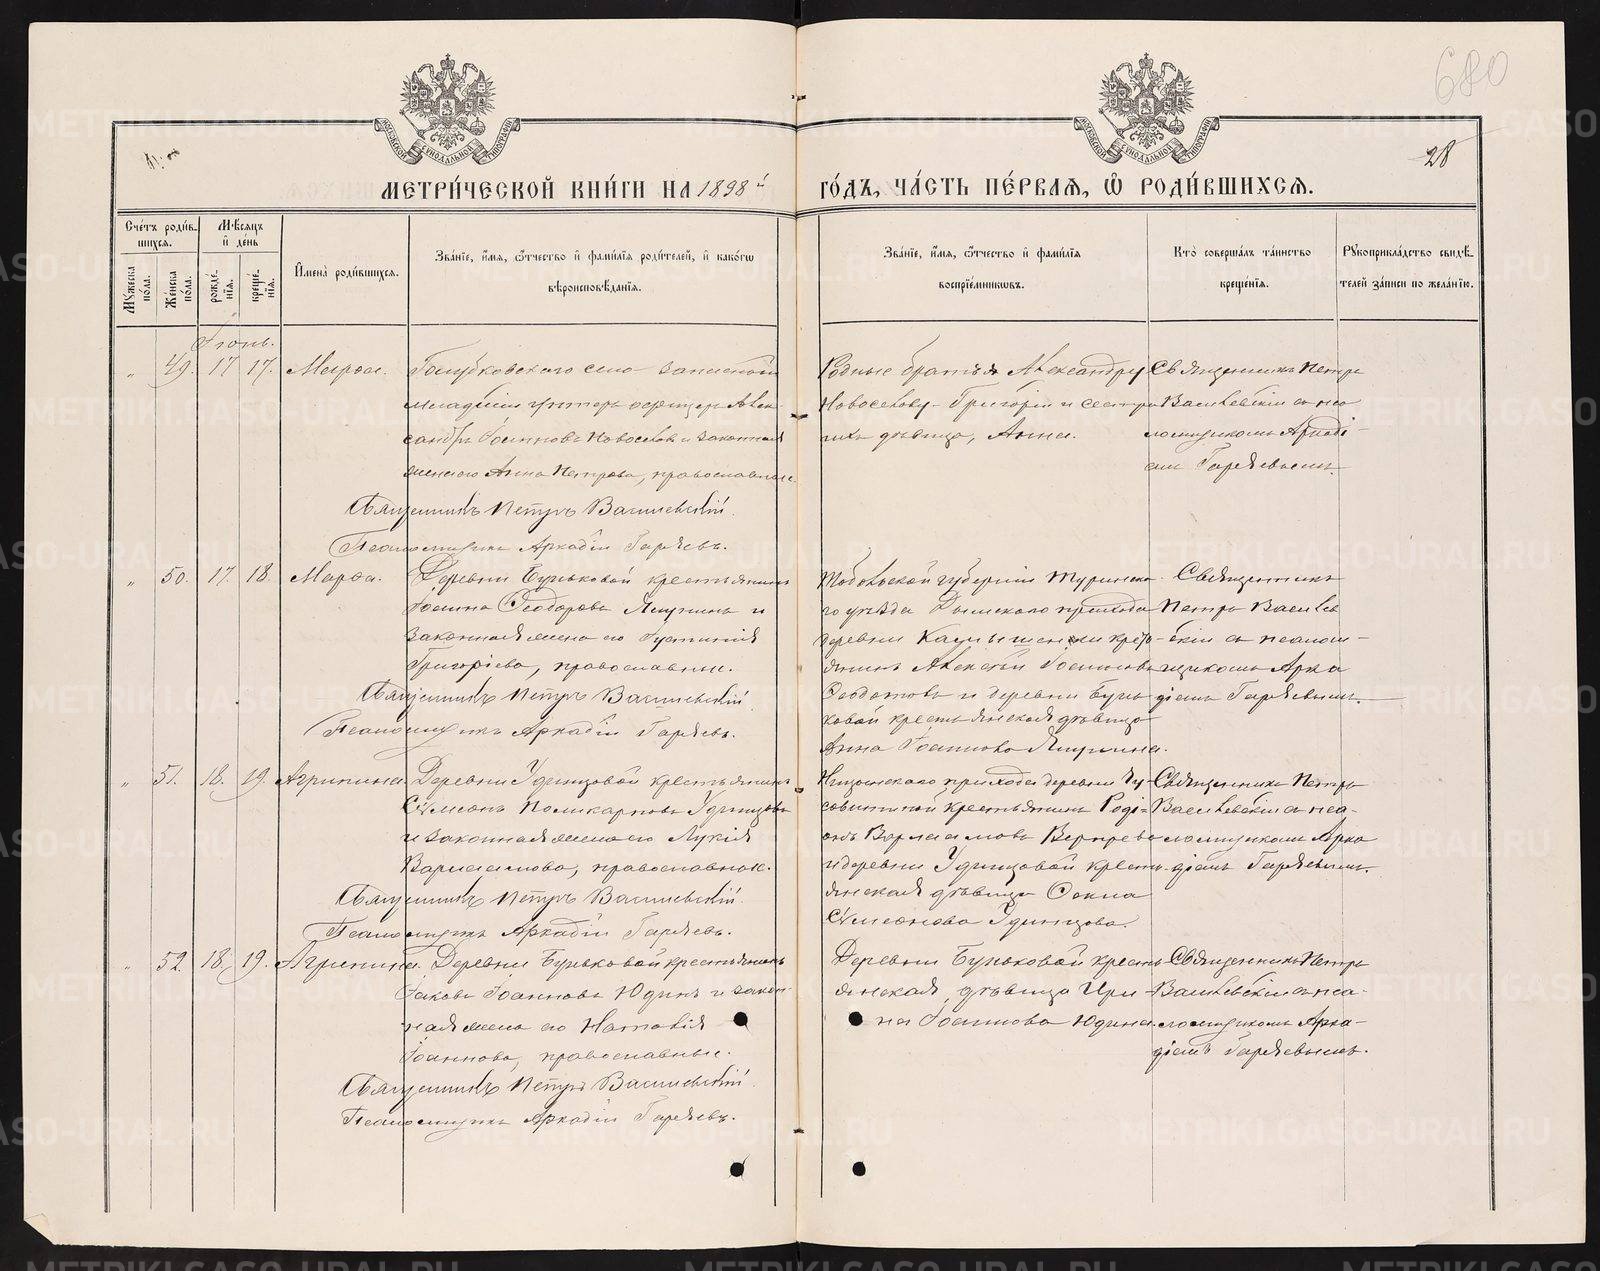 680
28
МОСКОВСКОЙ СУНОДАЛЬНОЙ ТИПОГРАФІИ
МОСКОВСКОЙ СУНОДАЛЬНОЙ ТИПОГРАФІИ
МЕТРИ́ЧЕСКОЙ КНИ́ГИ НА 1898й ГО́ДЪ, ЧА́СТЬ ПЕ́РВАѦ, Ѡ҆ РОДИ́ВШИХСѦ.
Сче́тъ роди́в-
шихсѧ.
Мѣ́сѧцъ
и҆ де́нь
Му́жеска
по́ла.
Же́нска
по́ла.
рожде́-
нїѧ.
креще́-
нїѧ.
И҆мена̀ роди́вшихсѧ.
Зва́нїе, и҆́мѧ, ѻ҆́тчество и҆ фами́лїѧ роди́телей, и҆ како́гѡ
вѣроисповѣ́данїѧ.
Зва́нїе, и҆́мѧ, ѻ҆́тчество и҆ фами́лїѧ
воспрїе́мникѡвъ.
Кто̀ соверша́лъ та́инство
креще́нїѧ.
Рукоприкла́дство свидѣ́-
телей за́писи по жела́нїю.
Іюнь.
„ 49. 17 17. Марѳа.
Голубковскаго села запасный
младшій унтеръ офицеръ Алек-
сандръ Іоанновъ Новоселовъ и законная
жена его Анна Петрова, православные.
Священникъ Петръ Василевскій.
Псаломщикъ Аркадій Гаряевъ.
Родные братья Александру
Новоселову - Григорій и сестра
ихъ дѣвица, Анна.
Священникъ Петръ
Василевскій съ пса-
ломщикомъ Аркаді-
емъ Гаряевымъ.
„ 50. 17. 18. Марѳа.
Деревни Буньковой крестьянинъ
Іоаннъ Ѳеодоровъ Якунинъ и
законная жена его Іустинія
Григоріева, православные.
Священникъ Петръ Василевскій.
Псаломщикъ Аркадій Гаряевъ.
Тобольской губерніи Туринска-
го уѣзда Дымскаго прихода
деревни Камышенки кресть-
янинъ Алексѣй Іоанновъ
Ѳеодотовъ и деревни Бунь-
ковой крестьянская дѣвица
Анна Іоаннова Якунина.
Священникъ
Петръ Василев-
скій съ псалом-
щикомъ Арка-
діемъ Гаряевымъ.
„ 51. 18. 19. Агрипина.
Деревни Удинцовой крестьянинъ
Сѵмеонъ Поликарповъ Удинцовъ
и законная жена его Лукія
Варлаамова, православные.
Священникъ Петръ Василевскій.
Псаломщикъ Аркадій Гаряевъ.
прихода деревни
крестьянинъ Родіонъ
Варлаамовъ
и деревни Удинцовой кресть-
янская дѣвица
Сѵмеонова Удинцова.
Священникъ Петръ
Василевскій съ пса-
ломщикомъ Арка-
діемъ Гаряевымъ.
„ 52. 18. 19. Агрипина.
Деревни Буньковой крестьянинъ
Іаковъ Іоанновъ Юдинъ и закон-
ная жена его Наталія
Іоаннова, православные.
Священникъ Петръ Василевскій.
Псаломщикъ Аркадій Гаряевъ.
Деревни Буньковой кресть-
янская дѣвица Ири-
на Іоаннова Юдина.
Священникъ Петръ
Василевскій съ пса-
ломщикомъ Арка-
діемъ Гаряевымъ.
METRIKI.GASO-URAL.RU